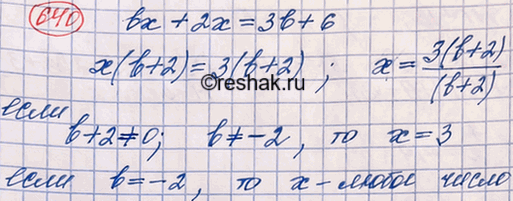 640 bx + 2x = 3b + 6
x(b+2) = 3(b+2) ; x = 3(b+2)/(b+2)
©reshak.ru
если
b+2≠0; b≠-2, то x=3
если b=-2, то x-любое число